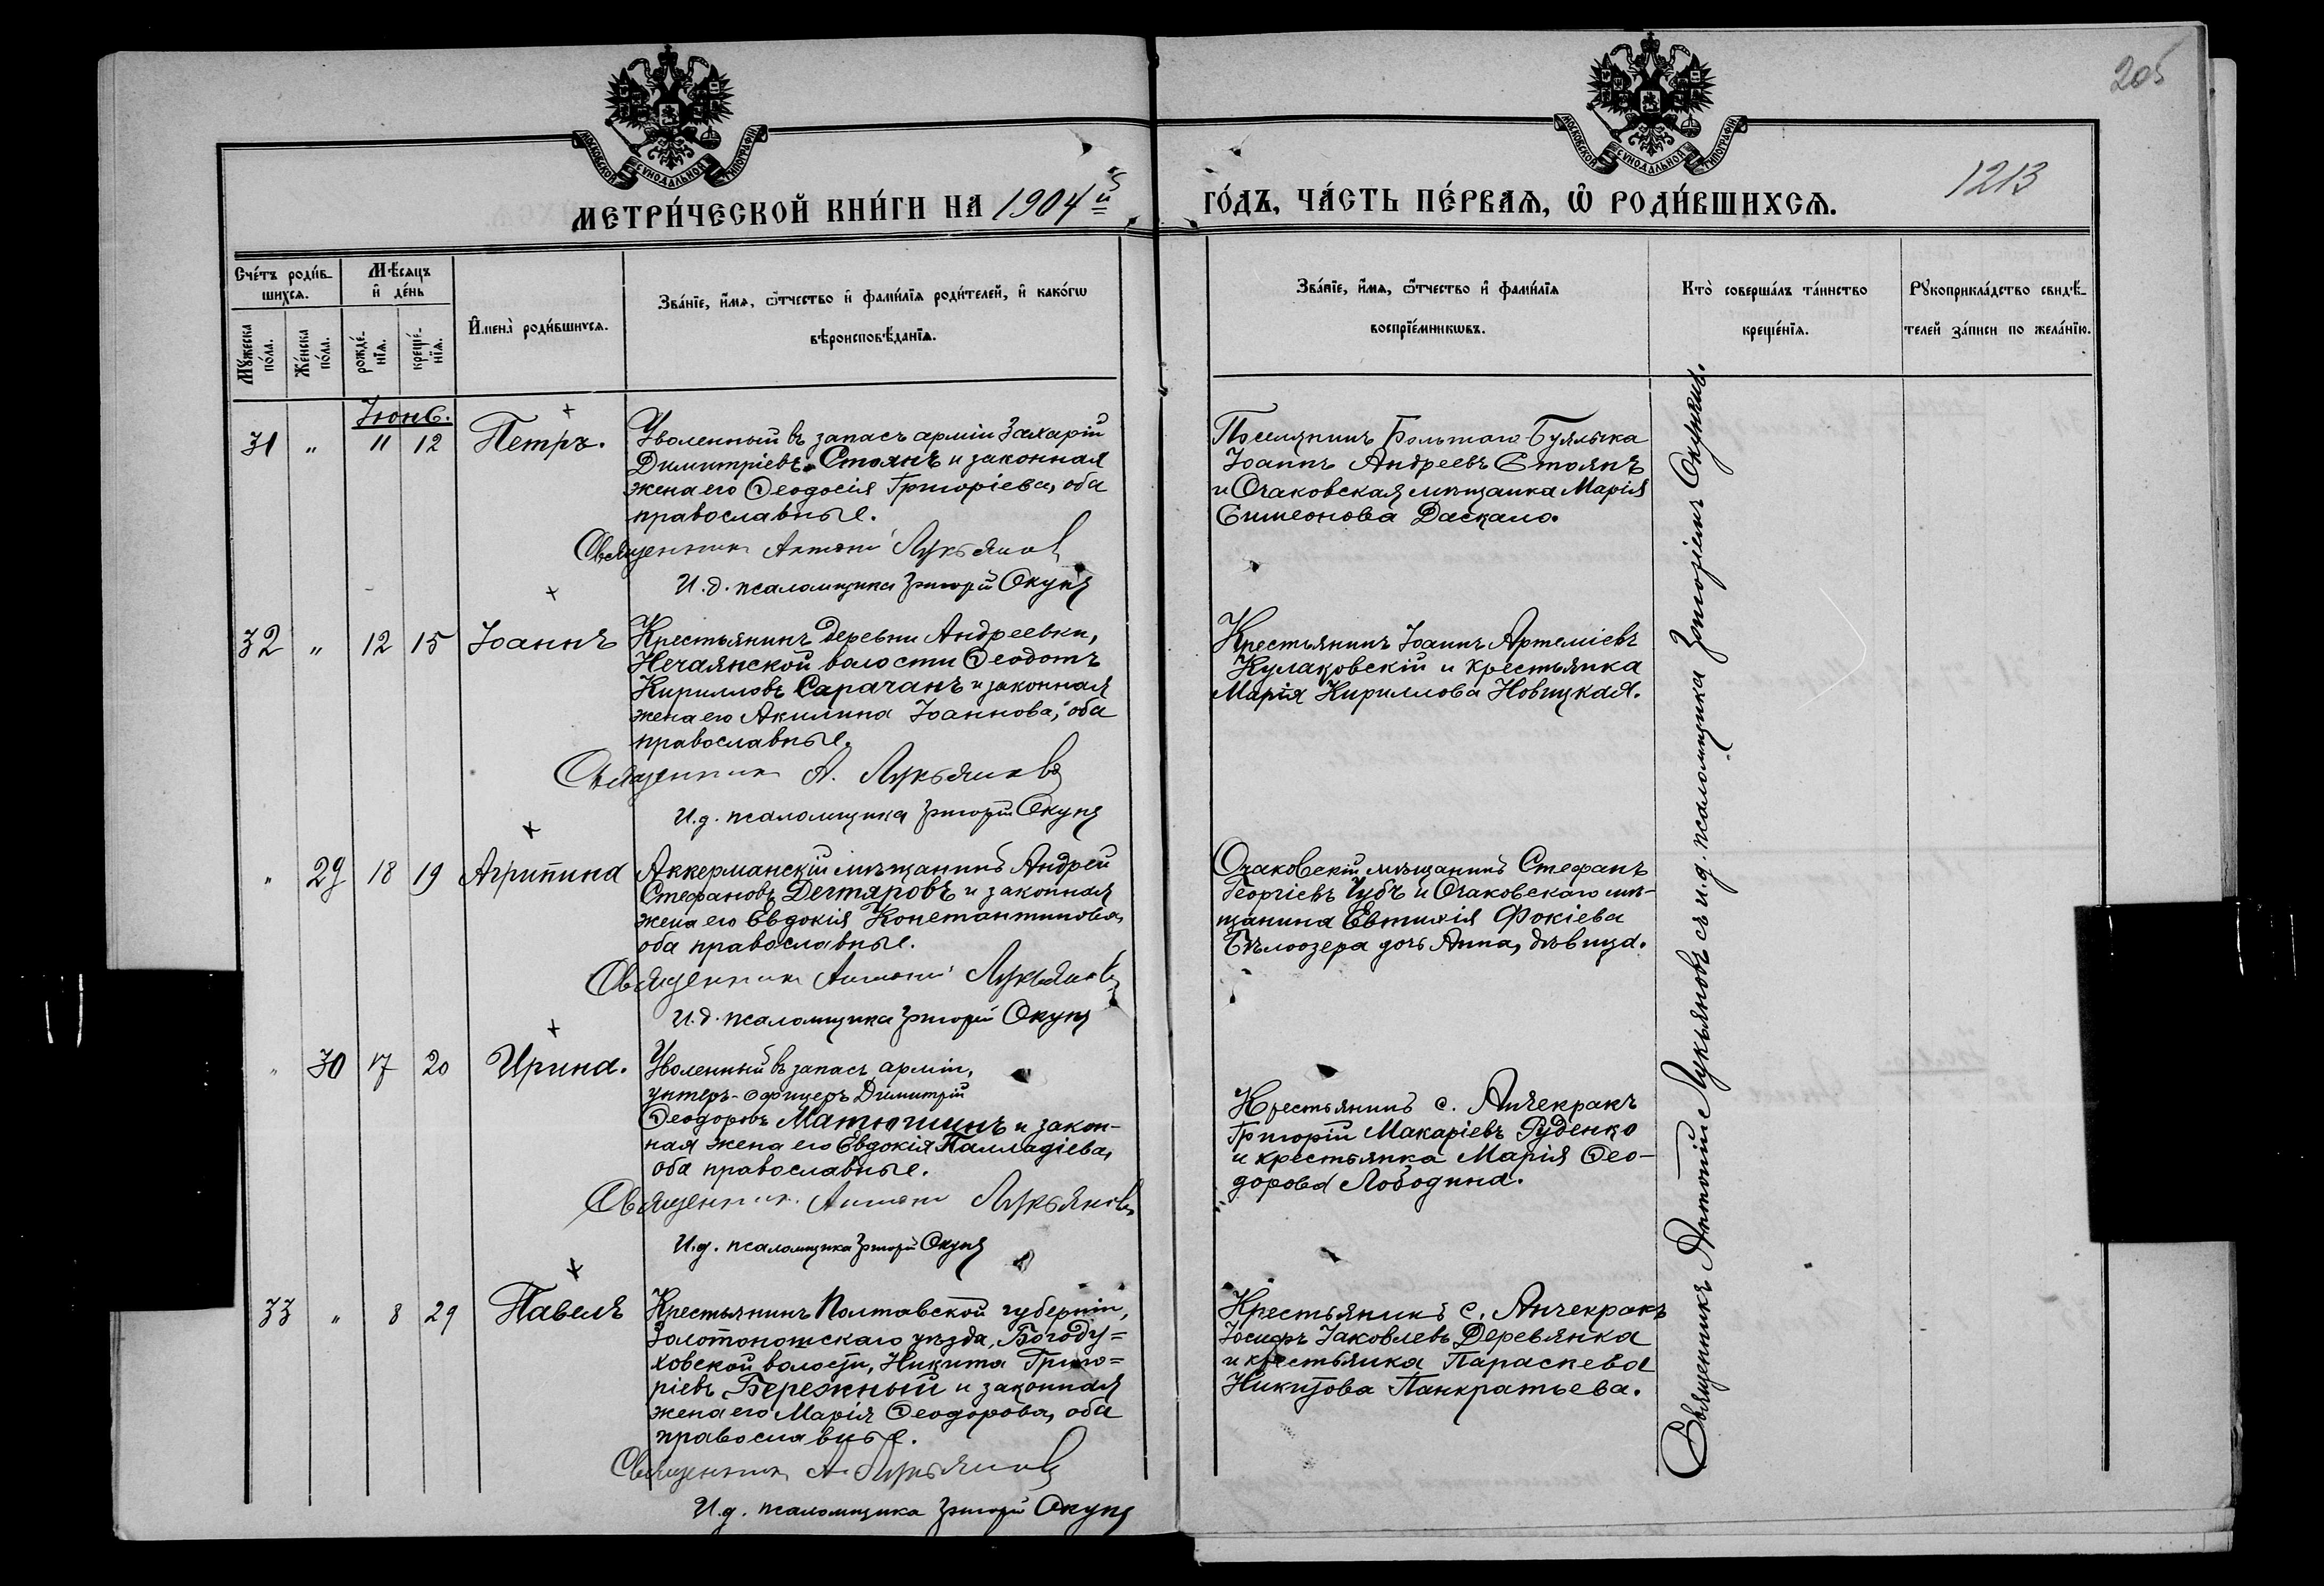 205
1213
МОСКОВСКОЙ СѴНОДАЛЬНОЙ ТИПОГРАФІИ
МОСКОВСКОЙ СѴНОДАЛЬНОЙ ТИПОГРАФІИ
МЕТРИ́ЧЕСКОЙ КНИ́ГИ НА 1904й
ГО́ДЪ, ЧА́СТЬ ПЕ́РВАѦ, Ѡ РОДИ́ВШИХСѦ.
Сче́тъ роди́в-
шихсѧ.
Мꙋжеска по́ла.
Же́нска по́ла.
Мѣ́сѧцъ
и҆ де́нь
рожде́-
нїѧ.
креще́-
нїѧ.
И҆мена̀ роди́вшихсѧ.
Зва́нїе, и҆́мѧ, ѻ҆́тчество и҆ фами́лїѧ роди́телей, и҆ како́гѡ
вѣроисповѣ́данїѧ.
Зва́нїе, и҆́мѧ, ѻ҆́тчество и҆ фами́лїѧ
воспрїе́мникѡвъ.
Кто̀ соверша́лъ та́инство
креще́нїѧ.
Рꙋкоприкла́дство свидѣ́-
телей за́писи по жела́нїю.
Іюнь.
31 " 11 12 Петръ.
Уволенный въ запасъ арміи Захарій
Димитріевъ Стоянъ и законная
жена его Ѳеодосія Григоріева, оба
православные.
Священникъ Антоній Лукьяновъ
И.д. псаломщика Григорій Окуня
Поселянинъ Большого Буялыка
Іоаннъ Андреевъ Стоянъ
и Очаковская мѣщанка Марія
Симеонова Даскало.
32 " 12 15 Іоаннъ
Крестьянинъ деревни Андреевки,
Нечаянской волости Ѳеодотъ
Кирилловъ Сарачанъ и законная
жена его Акилина Іоаннова, оба
православные.
Священникъ А. Лукьяновъ
И.д. псаломщика Григорій Окуня
Крестьянинъ Іоаннъ Артеміевъ
Кулаковскій и крестьянка
Марія Кириллова Новицкая.
" 29 18 19 Агрипина
Аккерманскій мѣщанинъ Андрей
Стефановъ Дегтяровъ и законная
жена его Евдокія Константинова,
оба православные.
Священникъ Антоній Лукьяновъ
И.д. псаломщика Григорій Окуня
Очаковскій мѣщанинъ Стефанъ
Георгіевъ Чубъ и Очаковскаго мѣ-
щанина Евтихія Фокіева
Бѣлоозера дочь Анна, дѣвица.
" 30 17 20 Ирина.
Уволенный въ запасъ арміи,
унтеръ-офицеръ Димитрій
Ѳеодоровъ Матюшинъ и закон-
ная жена его Евдокія Палладіева,
оба православные.
Священникъ Антоній Лукьяновъ
И.д. псаломщика Григорій Окуня
Крестьянинъ с. Анчекракъ
Григорій Макаріевъ Руденко
и крестьянка Марія Ѳео-
дорова Лободина.
33 " 8 29 Павелъ
Крестьянинъ Полтавской губерніи,
Золотоношскаго уѣзда, Богоду=
ховской волости, Никита Григо=
ріевъ Бережный и законная
жена его Марія Ѳеодорова, оба
православные.
Священникъ А. Лукьяновъ
И.д. псаломщика Григорій Окуня
Крестьянинъ с. Анчекракъ
Іосифъ Іаковлевъ Деревянка
и крестьянка Параскева
Никитова Панкратьева.
Священникъ Антоній Лукьяновъ съ и.д. псаломщика Григоріемъ Окунемъ.